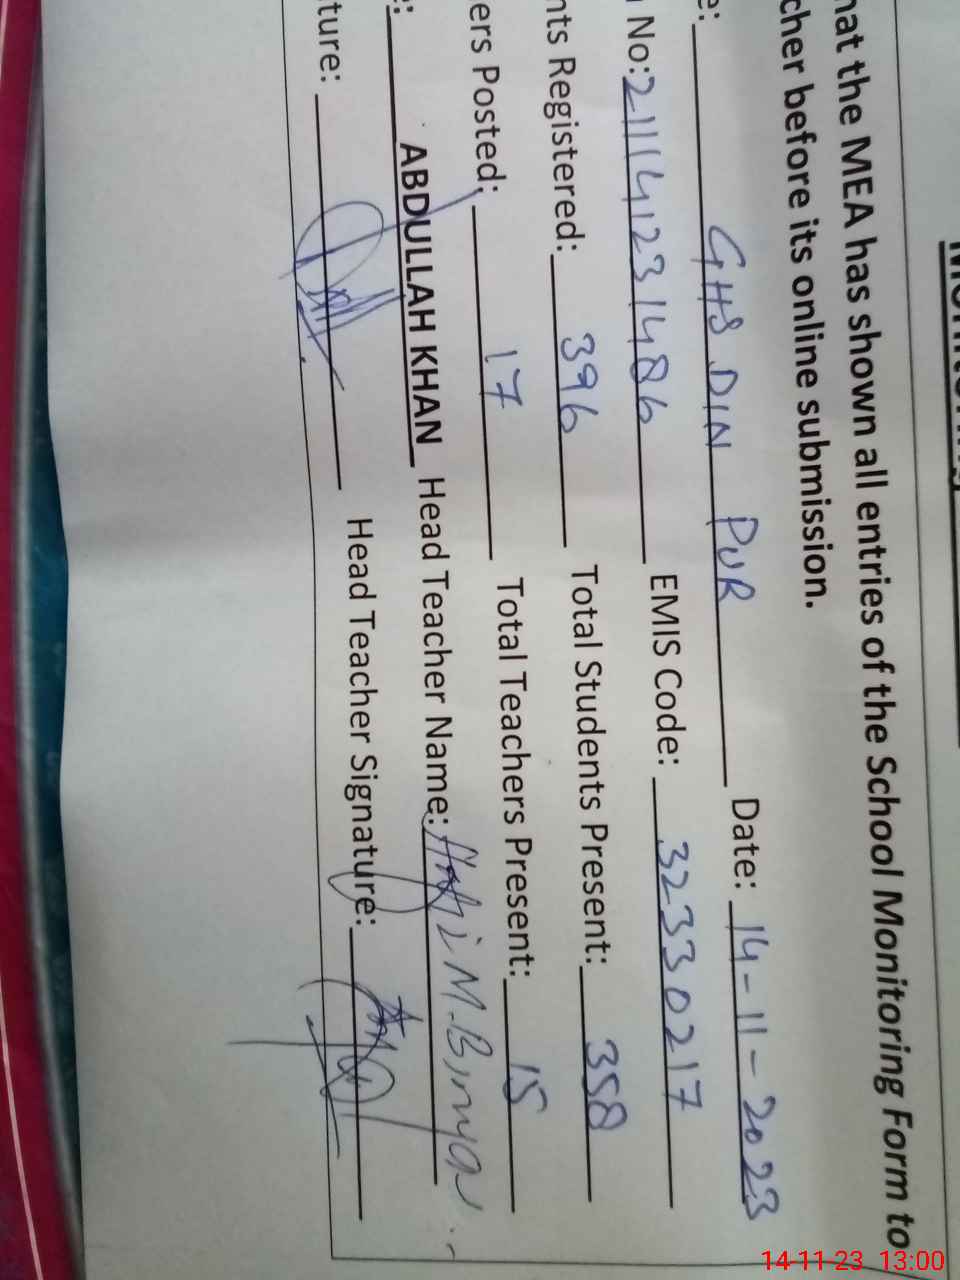 hat the MEA has shown all entries of the School Monitoring Form to
cher before its online submission.
e: GHS DIN PUR Date: 14-11-2023
No: 211141231486 EMIS Code: 32330217
nts Registered: 396 Total Students Present: 358
ers Posted: 17 Total Teachers Present: 15
e: ABDULLAH KHAN Head Teacher Name: M.
ture: Head Teacher Signature:
14-11-23 13:00